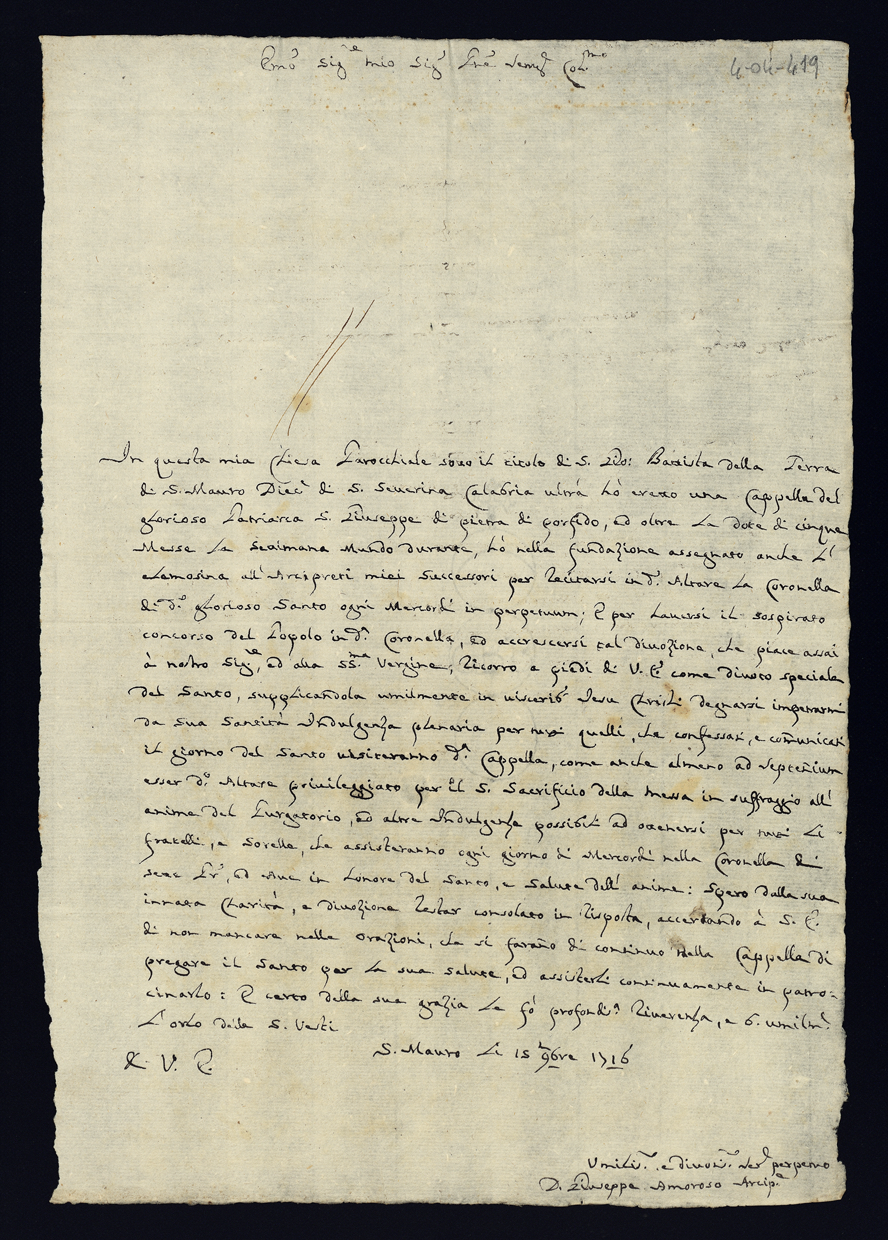 Em̃o Sig.re mio Sig.r Pr̃e Sem.e Col.mo
4-04-419
In questa mia Chiesa Parocchiale sotto il titolo di S. Gio: Battista della Terra
di S. Mauro Dieci di S. Severina Calabria ultrà hò eretto una Cappella del
glorioso Patriarca S. Giuseppe di pietra di porfido, ed oltre la Dote di cinque
Messe la Settimana Mundo durante, hò nella fundazione assegnato anche l'
elemosina all'Arcipreti miei Successori per recitarsi in d.º Altare la Coronella
di d.º glorioso Santo ogni Mercordì in perpetuum; E per haversi il sospirato
concorso del Popolo in d.ª Coronella, ed accrescersi tal divozione, che piace assai
à nostro Sig.re, ed alla SS.ma Vergine; Ricorro a piedi di V. E. come divoto speciale
del Santo, supplicandola umilmente in visceribˢ Jesu Christi degnarsi impetrarmi
da Sua Santità Indulgenza plenaria per tutti quelli, che confessati, e com̃unicati
il giorno del Santo visiteranno d.ª Cappella, come anche almeno ad septenium
esser d.º Altare privileggiato per il S. Sacrificio della messa in suffraggio all'
anime del Purgatorio, ed altre Indulgenze possibili ad ottenersi per tutti li
fratelli, e Sorelle, che assisteranno ogni giorno di Mercordì nella Coronella di
sette Pr̃, ed Ave in honore del Santo, e Salute dell'anime: Spero dalla sua
innata Charità, e divozione restar consolato in risposta, accertando à S. E.
di non mancare nelle orazioni, che si farañо di continuo nella Cappella di
pregare il Santo per la sua salute, ed assisterli continuamente in patro:
cinarlo: E certo della sua grazia le fò profondis.ª riverenza, e b. umilm.e
l'orlo della S. Vesti
Di V. E.
S. Mauro li 15 9bre 1716
Umiliss. e divotiss. ser.e perpetuo
D. Giuseppe Amoroso Arcip.e